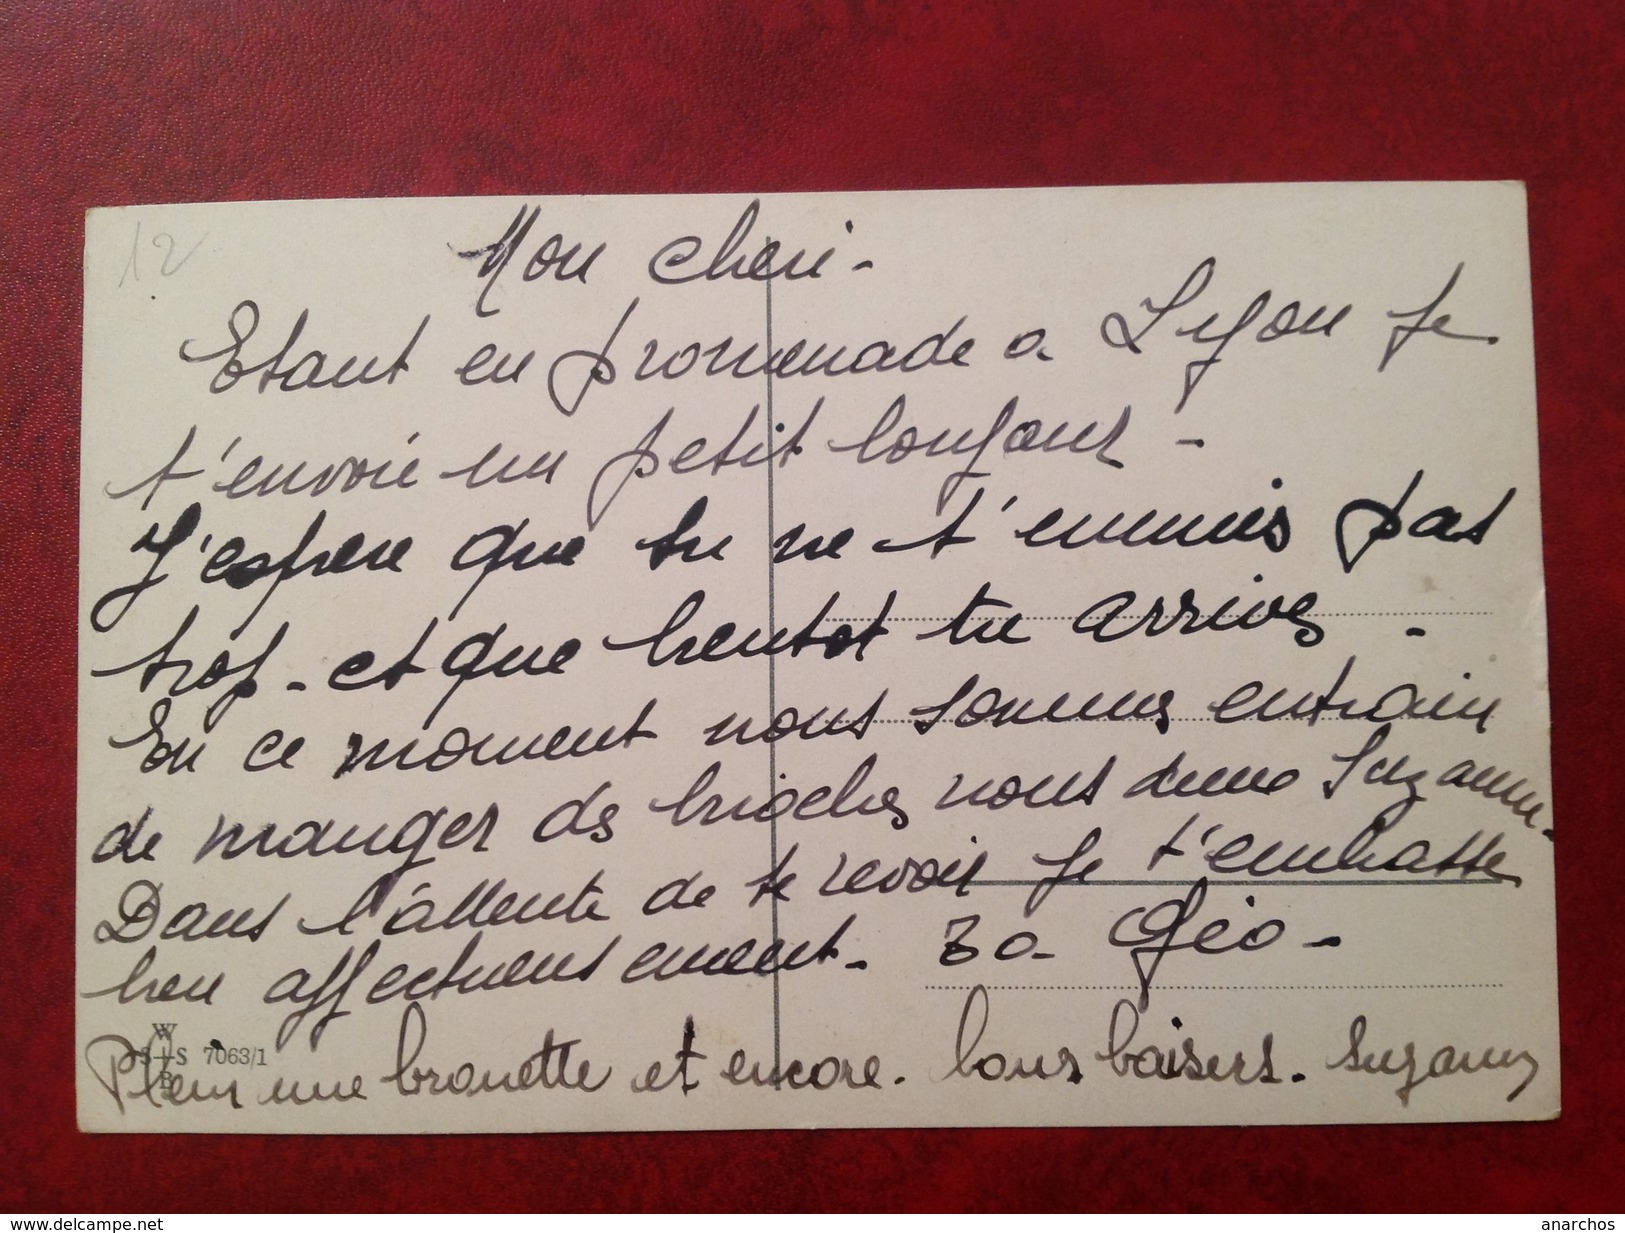 12
Mon cheri -
Etant en promenade a Lyon Je
t'envoie un petit bonjour -
J'espere que tu ne t'ennuis pas
trop - et que bientot tu arrives -
En ce moment nous sommes entrain
de manger des brioches nous deux Suzanne -
Dans l'attente de te revoir Je t'embrasse
bien affectueusement - Ta Géo -
Plein une brouette et encore. bons baisers. Suzanne
W
S+S 7063/1
B
www.delcampe.net
anarchos